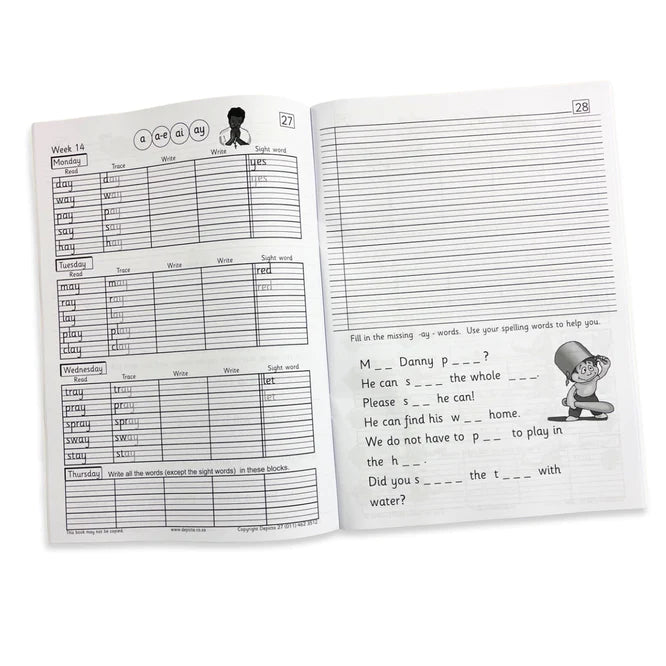 27
a a-e ai ay
Week 14
Monday
Read Trace Write Write Sight word
day day yes
way way yes
pay pay
say say
hay hay
Tuesday
Read Trace Write Write Sight word
may may red
ray ray red
lay lay
play play
clay clay
Wednesday
Read Trace Write Write Sight word
tray tray let
pray pray let
spray spray
sway sway
stay stay
Thursday Write all the words (except the sight words) in these blocks.
This book may not be copied. www.depicta.co.za Copyright Depicta 27 (011) 462 3512
28
Fill in the missing -ay - words. Use your spelling words to help you.
M _ _ Danny p _ _ _ ?
He can s _ _ _ the whole _ _ _.
Please s _ _ he can!
He can find his w _ _ home.
We do not have to p _ _ to play in
the h _ _.
Did you s _ _ _ _ the t _ _ _ with
water?